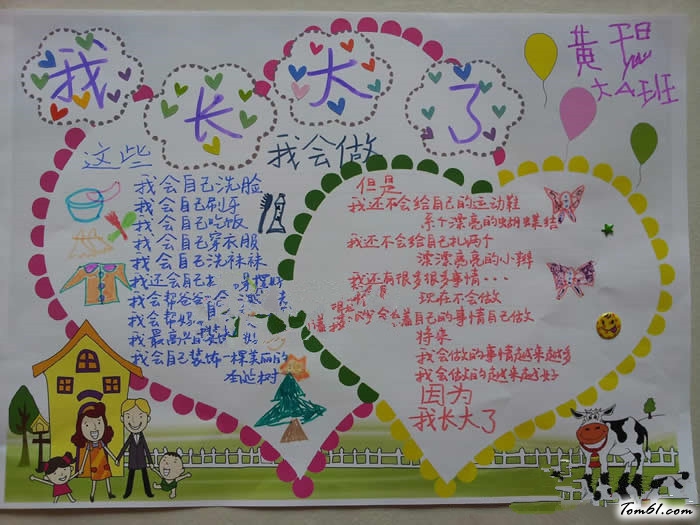 我长大了
黄
大A班
这些
我会做
我会自己洗脸
我会自己刷牙
我会自己吃饭
我会自己穿衣服
我会自己洗袜袜
我还会自己
我会帮爸爸
我会帮妈
我最高兴
我会自己装饰一棵美丽的
圣诞树
但是
我还不会给自己的运动鞋
系个漂亮的蝴蝶结
我还不会给自己扎两个
漂漂亮亮的小辫
我还有很多很多事情···
现在不会做
自己的事情自己做
将来
我会做的事情越来越多
我会做的越来越好
因为
我长大了
Tom61.com